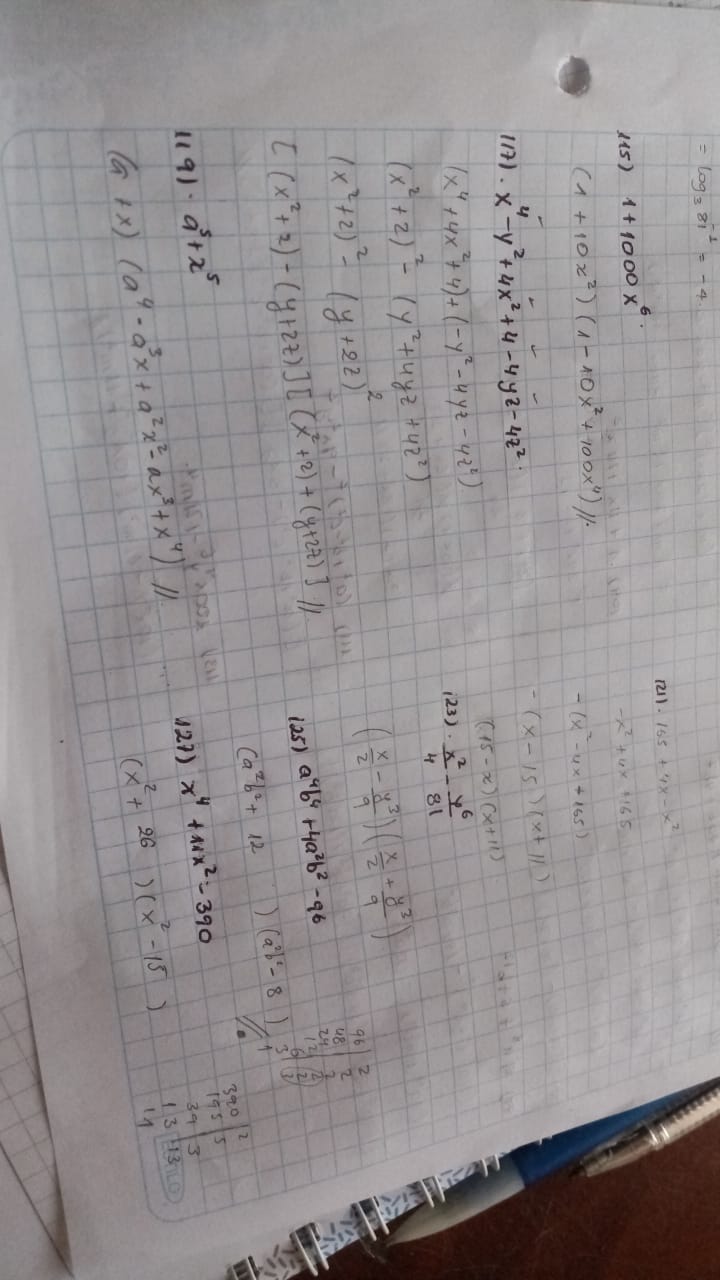 = log₃ 81⁻¹ = -4.
115) 1+1000x⁶.
(1+10x²)(1-10x²+100x⁴)//.
117). x⁴-y²+4x²+4-4yz-4z².
(x⁴+4x²+4)+(-y²-4yz-4z²)
(x²+2)²-(y²+4yz+4z²)
(x²+2)²-(y+2z)²
[(x²+2)-(y+2z)][(x²+2)+(y+2z)]//
119). a⁵+x⁵
(a+x)(a⁴-a³x+a²x²-ax³+x⁴)//
121). 165+4x-x²
-x²+4x+165
-(x²-4x+165)
-(x-15)(x+11)
(15-x)(x+11)
123). x²/4 - y⁶/81
(x/2 - y³/9)(x/2 + y³/9)
125) a⁴b⁴+4a²b²-96
(a²b²+ 12 )(a²b²-8 )//.
96 | 2
48 | 2
24 | 2
12 | 2
6 | 2
3 | 3
1
127) x⁴+11x²-390
(x²+ 26 )(x²-15 )
390 | 2
195 | 5
39 | 3
13 | 13
1